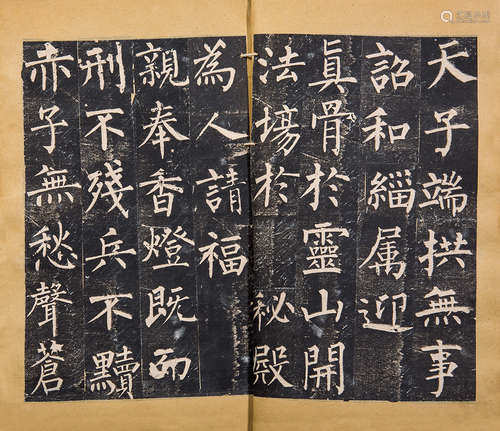 天子端拱無事
詔和緇属迎
真骨於靈山開
法場於秘殿
為人請福
親奉香燈既而
刑不殘兵不黷
赤子無愁聲蒼